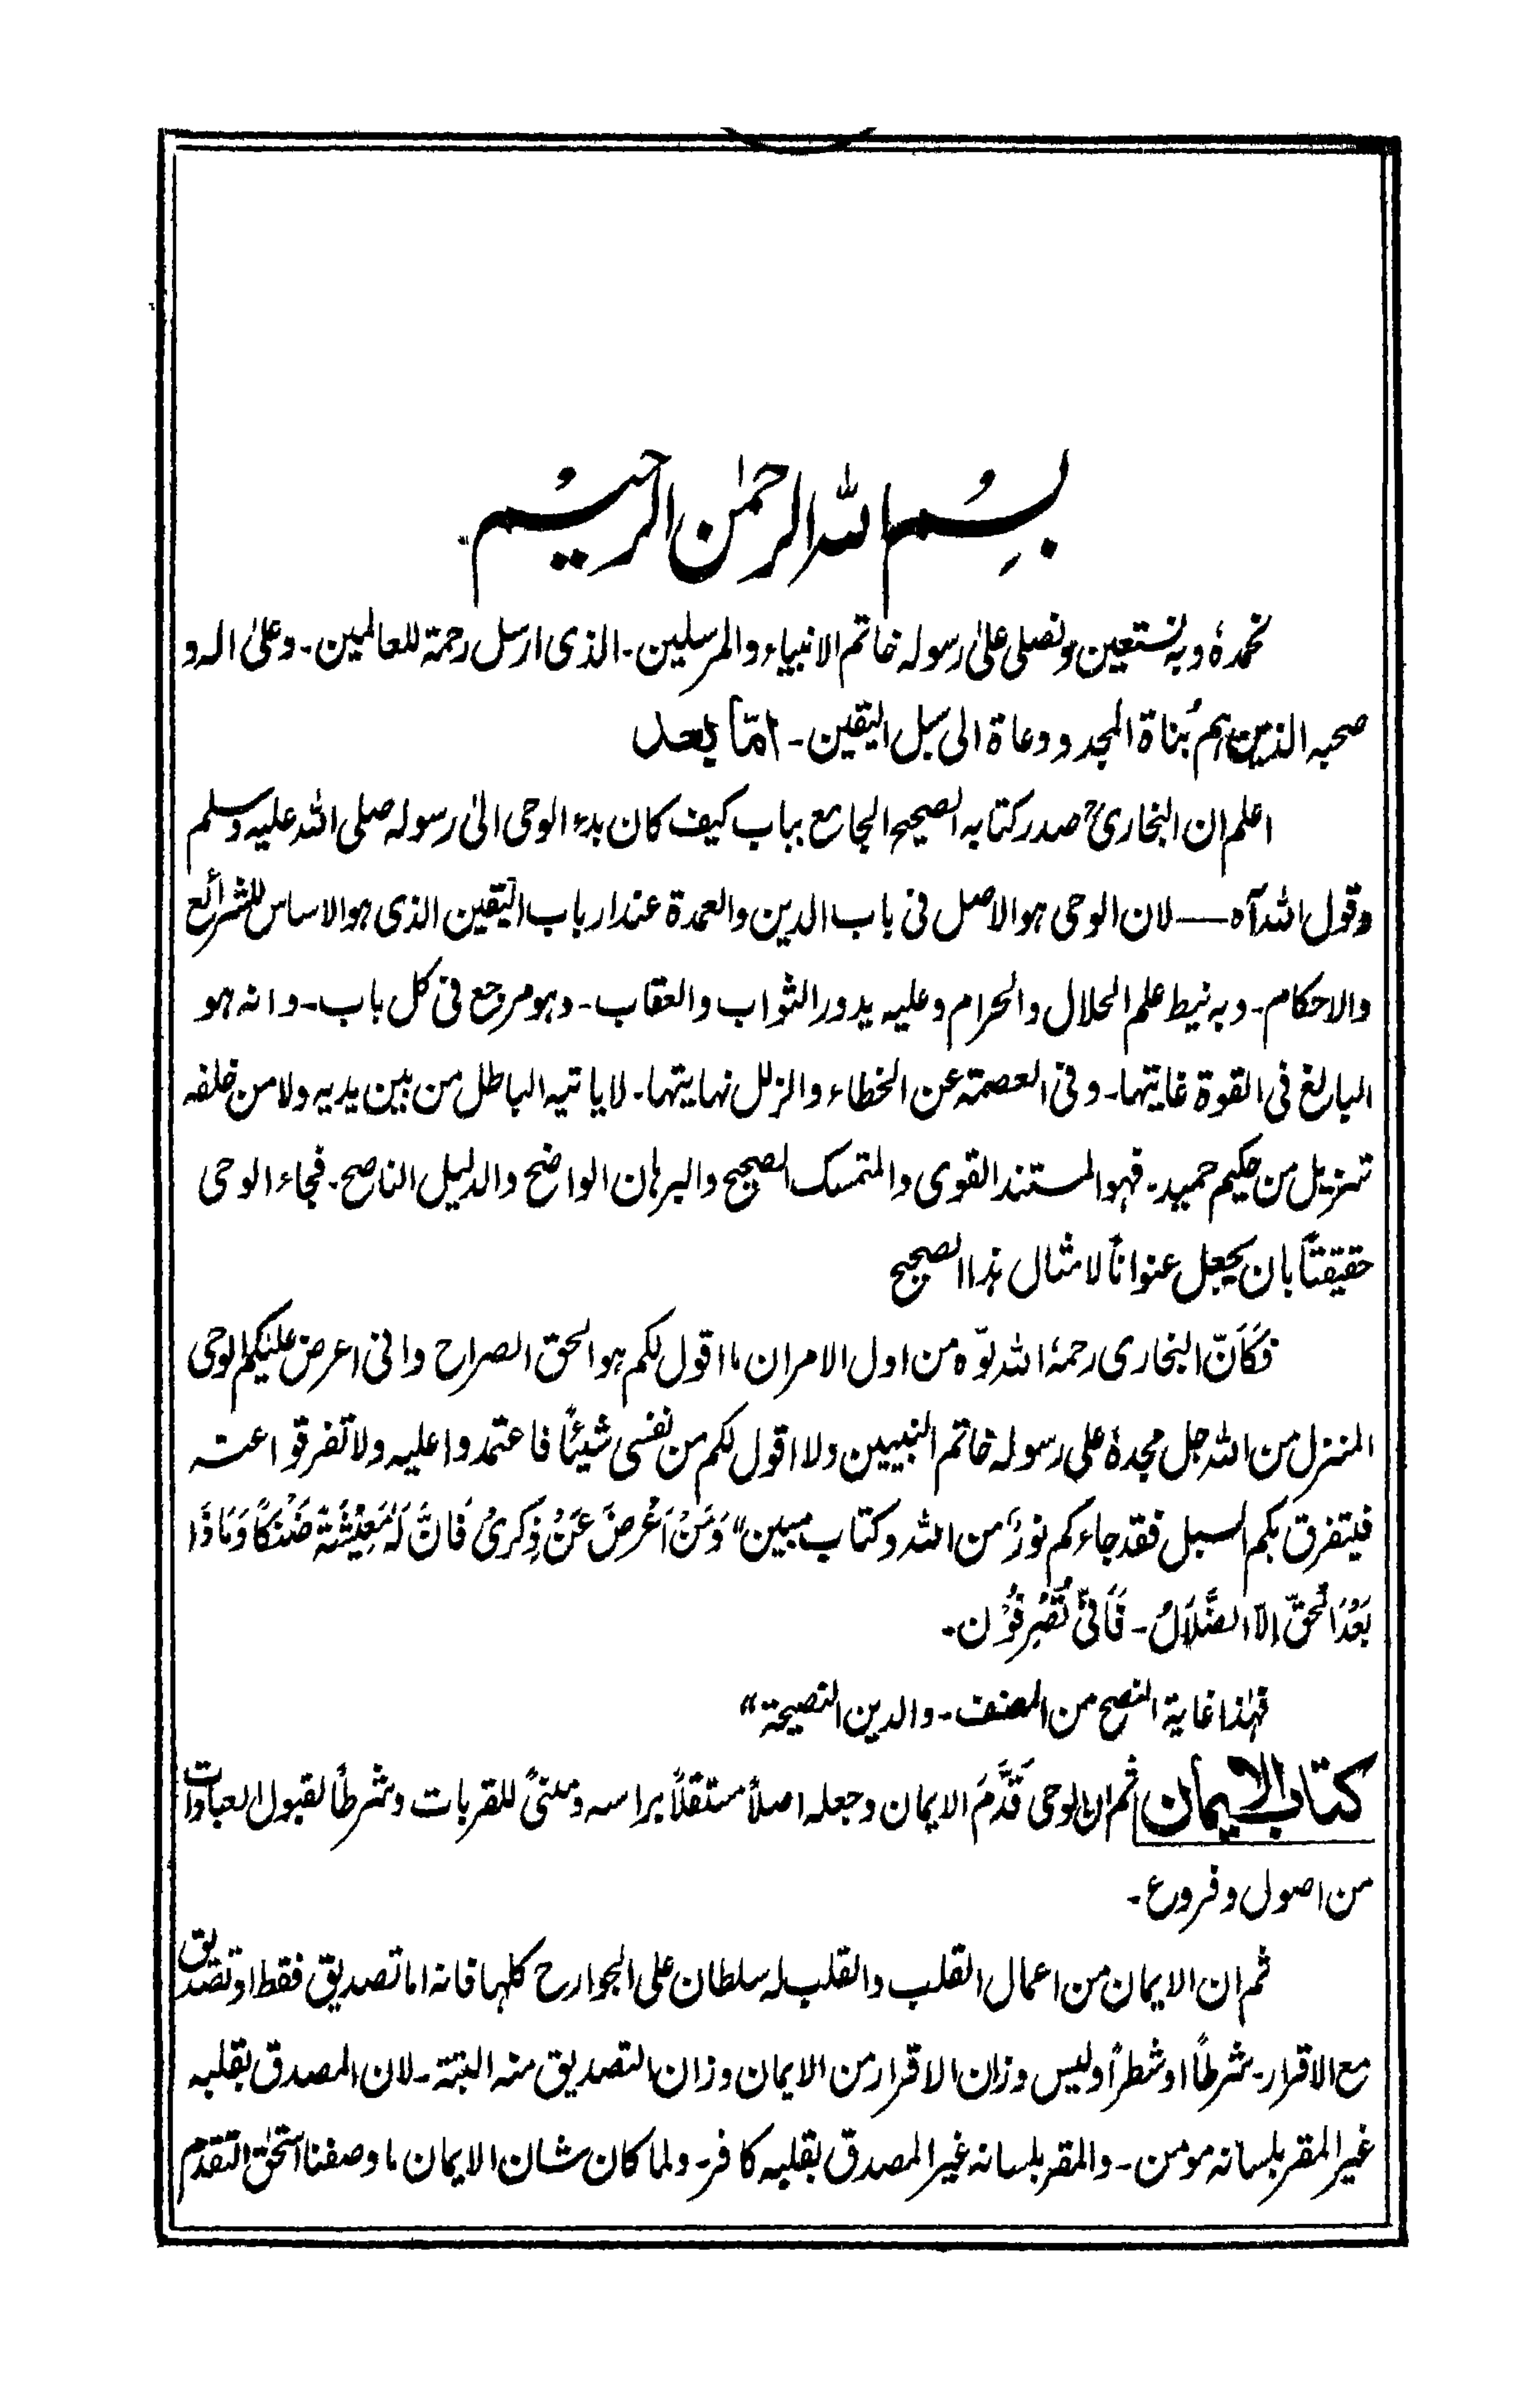 بِسْمِ اللہ الرحمٰن الرحیم
نحمدہٗ وبہ نستعین ونصلی علیٰ رسولہ خاتم الانبیاء والمرسلین۔ الذی ارسل رحمۃ للعالمین۔ وعلیٰ الہ و
صحبہ الذین ہم بُناۃ المجد ودعاۃ الی سبل الیقین۔ امّا بعد
اعلم ان البخاریؒ صدر کتابہ الصحیح الجامع بباب کیف کان بدء الوحی الیٰ رسولہ صلی اللہ علیہ وسلم
وقول اللہ آہ — لان الوحی ہو الاصل فی باب الدین والعمدۃ عند ارباب الیقین الذی ہو الاساس للشرائع
والاحکام۔ وبہ نیط علم الحلال والحرام وعلیہ یدور الثواب والعقاب۔ وہو مرجع فی کل باب۔ وانہ ہو
البالغ فی القوۃ غایتہا۔ وفی العصمۃ عن الخطاء والزلل نہایتہا۔ لا یاتیہ الباطل من بین یدیہ ولا من خلفہ
تنزیل من حکیم حمید۔ فہو المستند القوی والمتمسک الصحیح والبرہان الواضح والدلیل الناصح۔ فجاء الوحی
حقیقتاً بان یجعل عنواناً لامثال ہذا الصحیح
فَکَاَنّ البخاری رحمہٗ اللہ نوّہ من اول الامر ان ما اقول لکم ہو الحق الصراح وانی اعرض علیکم الوحی
المنزل من اللہ جل مجدہٗ علی رسولہ خاتم النبیین ولا اقول لکم من نفسی شیئاً فاعتمدوا علیہ ولا تفرقوا عنہ
فیتفرق بکم السبل فقد جاءکم نورٌ من اللہ وکتاب مبین" وَمَنْ اَعْرَضَ عَنْ ذِکْرِیْ فَاِنَّ لَہٗ مَعِیْشَۃً ضَنْکاً وَمَاذَا
بَعْدَ الْحَقِّ اِلَّا الضَّلَالُ۔ فَاَنّیٰ تُصْرِفُوْن۔
فہٰذا غایۃ النصح من المصنف۔ والدین النصیحۃ"
کتاب الایمان ثم ان الوحی قَدَّمَ الایمان وجعلہ اصلاً مستقلاً براسہ ومبنیً للقربات وشرطاً لقبول العبادات
من اصول وفروع۔
ثم ان الایمان من اعمال القلب والقلب لہ سلطان علی الجوارح کلہا فانہ اما تصدیق فقط او تصدیق
مع الاقرار۔ شرطاً او شطراً ولیس وزان الاقرار من الایمان وزان التصدیق منہ البتۃ۔ لان المصدق بقلبہ
غیر المقر بلسانہ مومن۔ والمقر بلسانہ غیر المصدق بقلبہ کافر۔ ولما کان شان الایمان ما وصفنا استحق التقدم